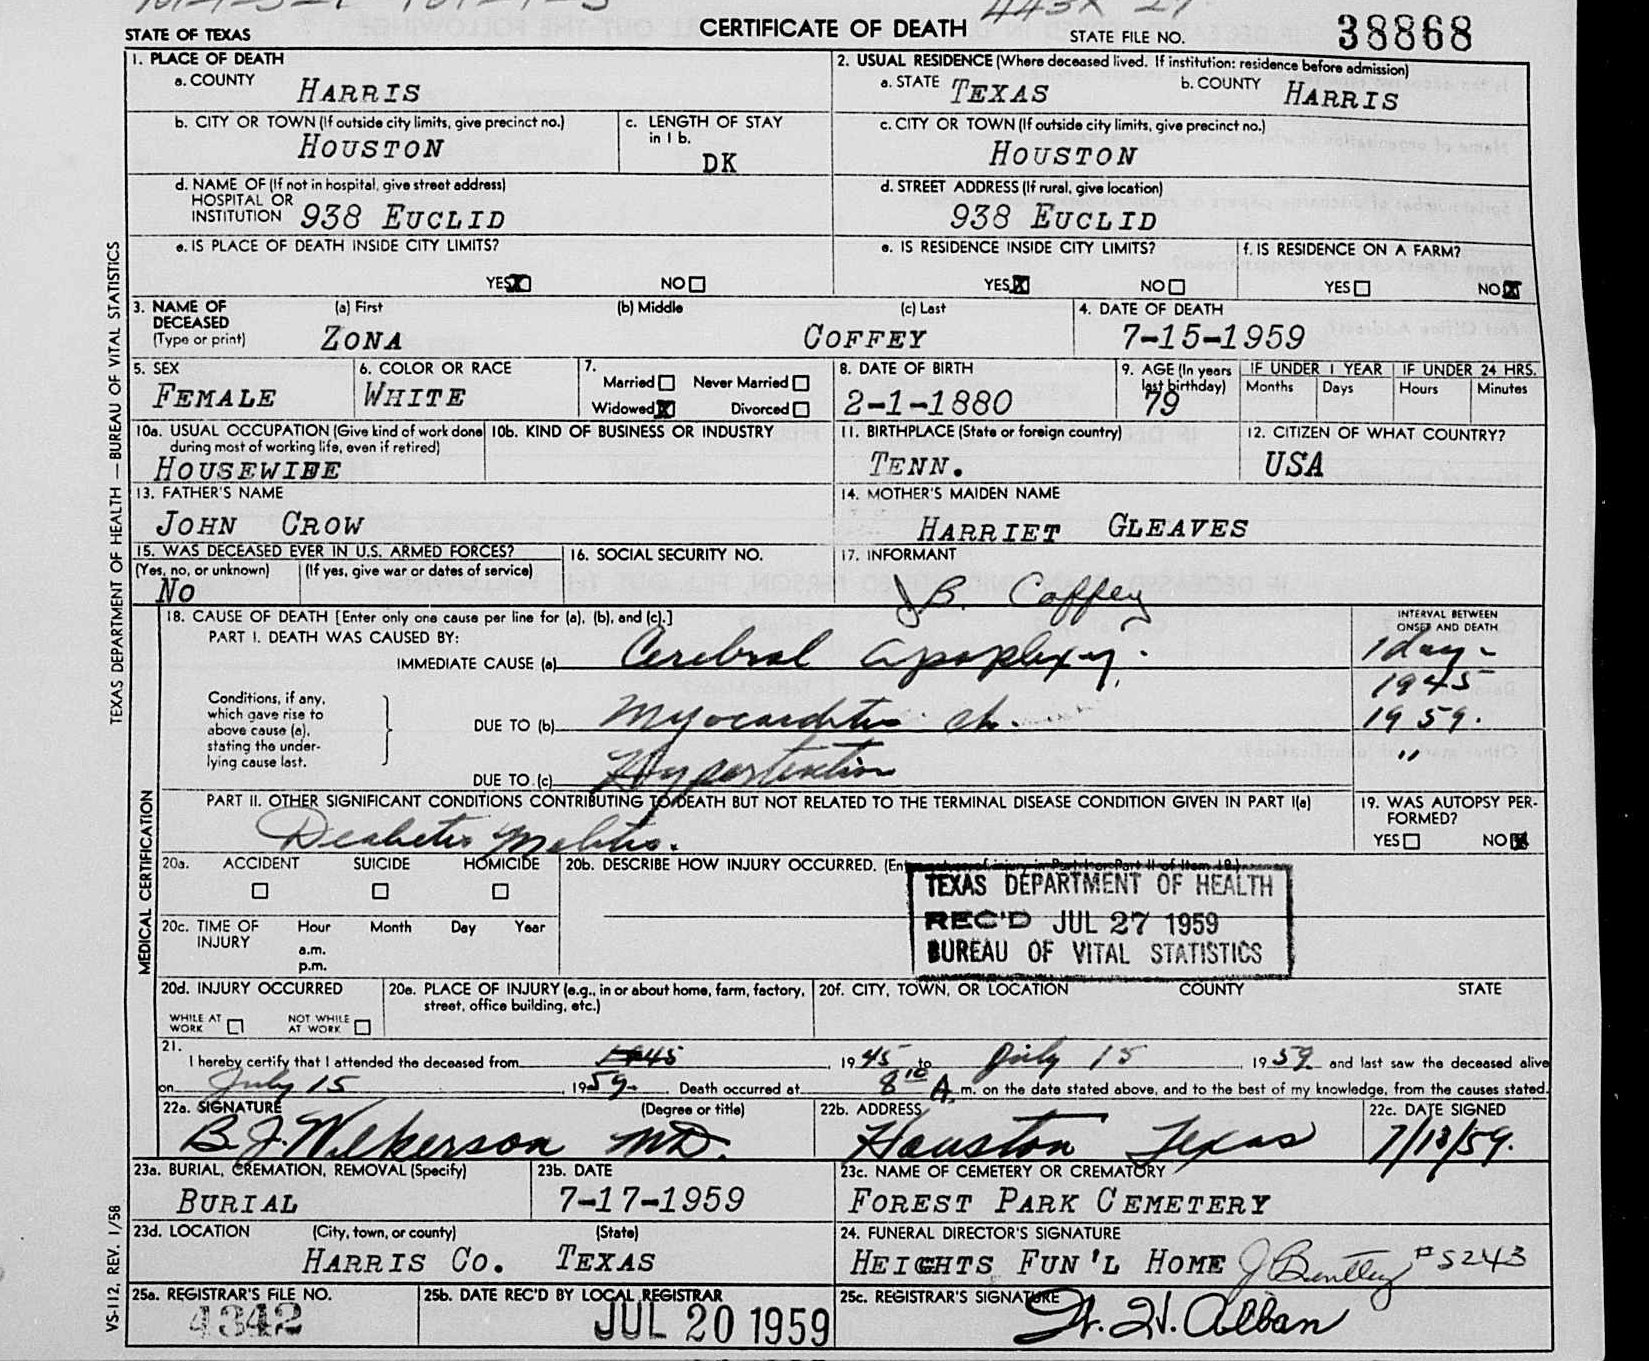 CERTIFICATE OF DEATH
STATE OF TEXAS
STATE FILE NO. 38868
1. PLACE OF DEATH
a. COUNTY HARRIS
2. USUAL RESIDENCE (Where deceased lived. If institution: residence before admission)
a. STATE TEXAS b. COUNTY HARRIS
b. CITY OR TOWN (If outside city limits, give precinct no.)
HOUSTON
c. LENGTH OF STAY
in 1 b.
DK
c. CITY OR TOWN (If outside city limits, give precinct no.)
HOUSTON
d. NAME OF (If not in hospital, give street address)
HOSPITAL OR
INSTITUTION 938 EUCLID
d. STREET ADDRESS (If rural, give location)
938 EUCLID
e. IS PLACE OF DEATH INSIDE CITY LIMITS?
YES NO
e. IS RESIDENCE INSIDE CITY LIMITS?
YES NO
f. IS RESIDENCE ON A FARM?
YES NO
3. NAME OF
DECEASED
(Type or print)
(a) First (b) Middle (c) Last
ZONA COFFEY
4. DATE OF DEATH
7-15-1959
5. SEX
FEMALE
6. COLOR OR RACE
WHITE
7.
Married Never Married
Widowed Divorced
8. DATE OF BIRTH
2-1-1880
9. AGE (In years
last birthday)
79
IF UNDER 1 YEAR
Months Days
IF UNDER 24 HRS.
Hours Minutes
10a. USUAL OCCUPATION (Give kind of work done
during most of working life, even if retired)
HOUSEWIFE
10b. KIND OF BUSINESS OR INDUSTRY
11. BIRTHPLACE (State or foreign country)
TENN.
12. CITIZEN OF WHAT COUNTRY?
USA
13. FATHER'S NAME
JOHN CROW
14. MOTHER'S MAIDEN NAME
HARRIET GLEAVES
15. WAS DECEASED EVER IN U.S. ARMED FORCES?
(Yes, no, or unknown) (If yes, give war or dates of service)
No
16. SOCIAL SECURITY NO.
17. INFORMANT
J B. Coffey
18. CAUSE OF DEATH [Enter only one cause per line for (a), (b), and (c).]
PART I. DEATH WAS CAUSED BY:
INTERVAL BETWEEN
ONSET AND DEATH
IMMEDIATE CAUSE (a) Cerebral apoplexy. 1 day -
Conditions, if any,
which gave rise to
above cause (a),
stating the under-
lying cause last.
1945
DUE TO (b) Myocarditis ch. 1959.
DUE TO (c) Hypertention "
PART II. OTHER SIGNIFICANT CONDITIONS CONTRIBUTING TO DEATH BUT NOT RELATED TO THE TERMINAL DISEASE CONDITION GIVEN IN PART I(a)
Deabetis Melitis.
19. WAS AUTOPSY PER-
FORMED?
YES NO
20a. ACCIDENT SUICIDE HOMICIDE
20b. DESCRIBE HOW INJURY OCCURRED. (Enter nature of injury in Part I or Part II of Item 18.)
TEXAS DEPARTMENT OF HEALTH
REC'D JUL 27 1959
BUREAU OF VITAL STATISTICS
20c. TIME OF
INJURY
Hour Month Day Year
a.m.
p.m.
20d. INJURY OCCURRED
WHILE AT
WORK
NOT WHILE
AT WORK
20e. PLACE OF INJURY (e.g., in or about home, farm, factory,
street, office building, etc.)
20f. CITY, TOWN, OR LOCATION COUNTY STATE
21.
I hereby certify that I attended the deceased from 1945, 1945 to July 15 1959 and last saw the deceased alive
on July 15, 1959. Death occurred at 8 10 A.m. on the date stated above, and to the best of my knowledge, from the causes stated.
22a. SIGNATURE (Degree or title)
B. J. Wilkerson MD.
22b. ADDRESS
Houston Texas
22c. DATE SIGNED
7/18/59.
23a. BURIAL, CREMATION, REMOVAL (Specify)
BURIAL
23b. DATE
7-17-1959
23c. NAME OF CEMETERY OR CREMATORY
FOREST PARK CEMETERY
23d. LOCATION (City, town, or county) (State)
HARRIS CO. TEXAS
24. FUNERAL DIRECTOR'S SIGNATURE
HEIGHTS FUN'L HOME J Bentley #5243
25a. REGISTRAR'S FILE NO.
4342
25b. DATE REC'D BY LOCAL REGISTRAR
JUL 20 1959
25c. REGISTRAR'S SIGNATURE
W. H. Alban
TEXAS DEPARTMENT OF HEALTH — BUREAU OF VITAL STATISTICS
MEDICAL CERTIFICATION
VS-112, REV. 1/58